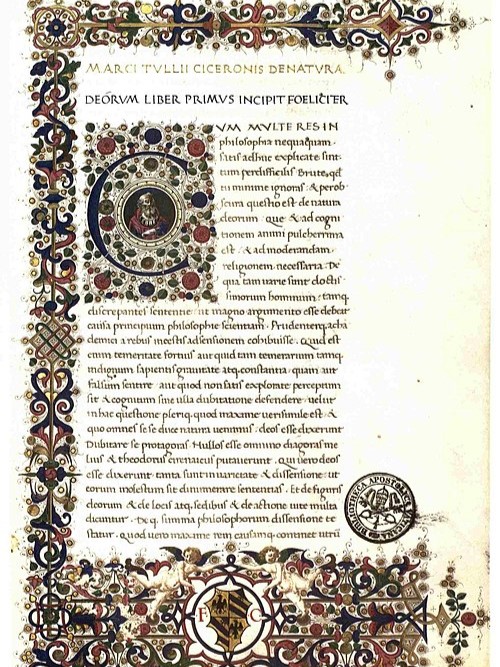 MARCI TVLLII CICERONIS DE NATVRA
DEORVM LIBER PRIMVS INCIPIT FOELICITER
CVM MVLTE RES IN
philosophia nequaquam
satis adhuc explicate sint
tum perdifficilis Brute, qd
tu minime ignoras & perob
scura questio est de natura
deorum que & ad cogni
tionem animi pulcherrima
est & ad moderandam
religionem necessaria De
qua tam uarie sunt doctis
simorum hominum tamq
discrepantes sententie ut magno argumento esse debeat
causa principium philosophie scientiam Prudenterq acha
demici a rebus incertis adsensionem cohibuisse Quid est
enim temeritate fortius aut quid tam temerarium tamq
indignum sapientis grauitate atq constantia quam aut
falsum sentire aut quod non satis explorate perceptum
sit & cognitum sine ulla dubitatione defendere uelut
in hac questione pleriq quod maxime uerisimile est &
quo omnes se se duce natura uenimus deos esse dixerunt
Dubitare se protagoras Nullos esse omnino diagoras me
lius & theodorus cirenaicus putauerunt Qui uero deos
esse dixerunt tanta sunt in uarietate & dissensione ut
eorum molestum sit dinumerare sententias Et de figuris
deorum & de locis atq sedibus & de actione uite multa
dicuntur De q summa philosophorum dissensione ce
statur quod uero maxime rem causamq continet utrū
F C
BIBLIOTHECA APOSTOLICA VATICANA